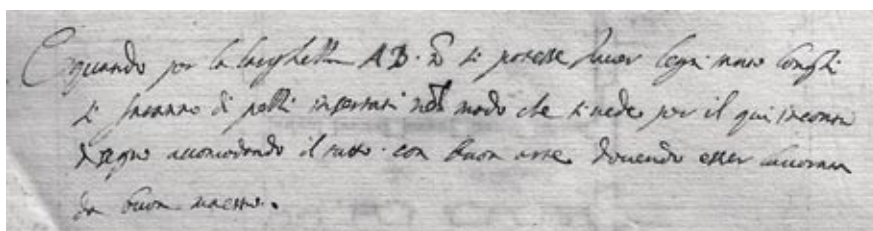 E quando per la larghetta AB. nõ si potesse hauer legni tanto longhi
si faranno di pezzi inseriti nel modo che si uede per il qui incontro
disegno accomodando il tutto con buon arte douendo esser lauorata
da buon maestro.